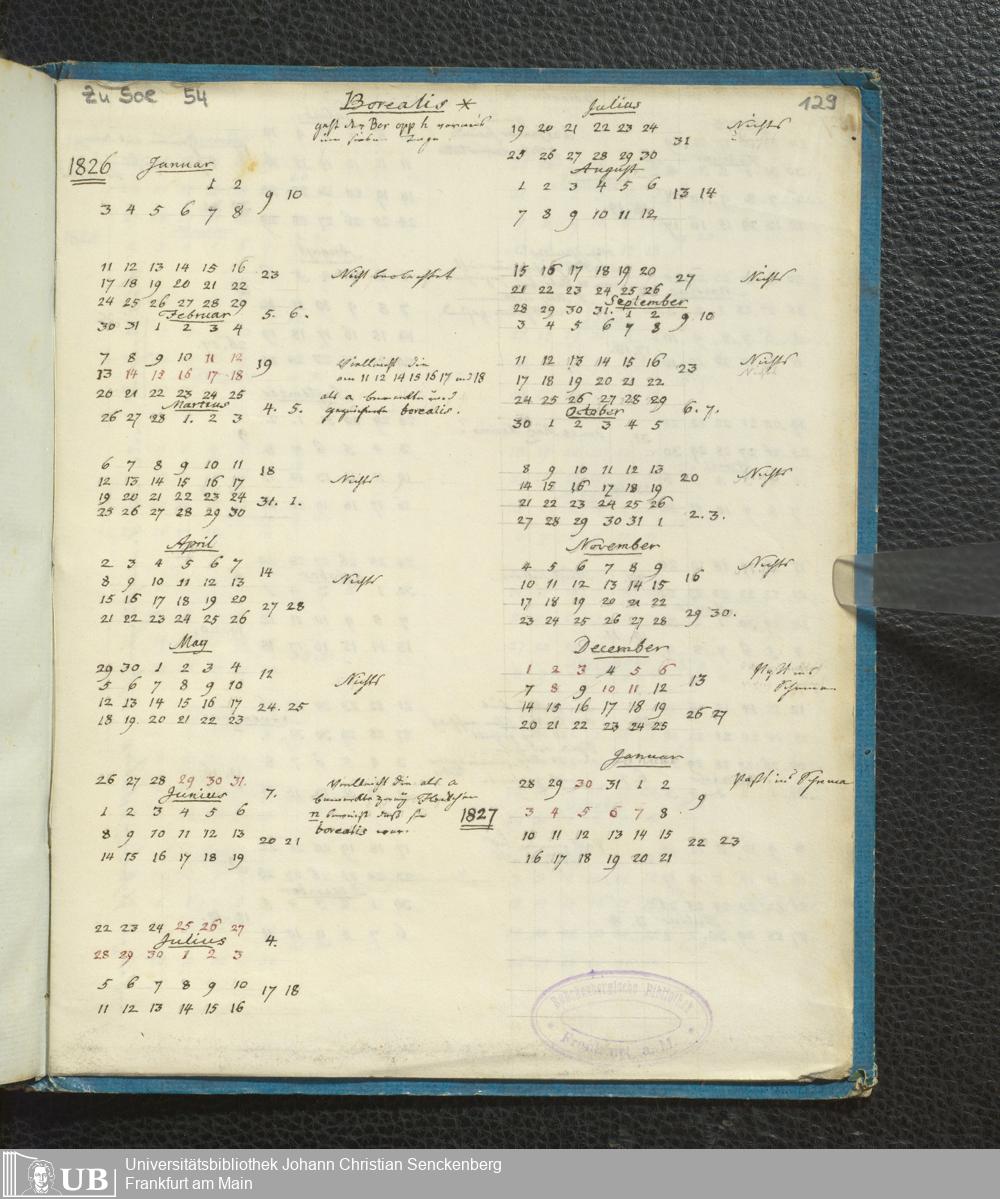 Zu Soe 54
129
Borealis *
geht der Bor opp h voraus
um sieben Tage
1826 Januar
1 2
9 10
3 4 5 6 7 8
11 12 13 14 15 16
23
Nicht beobachtet
17 18 19 20 21 22
24 25 26 27 28 29
Februar
5. 6.
30 31 1 2 3 4
7 8 9 10 11 12
19
Vielleicht die
13 14 15 16 17 18
am 11 12 14 15 16 17 und 18
20 21 22 23 24 25
als a bemerkte und
Martius
4. 5.
borealis.
26 27 28 1. 2 3
6 7 8 9 10 11
18
12 13 14 15 16 17
Nichts
19 20 21 22 23 24
31. 1.
25 26 27 28 29 30
April
2 3 4 5 6 7
14
8 9 10 11 12 13
Nichts
15 16 17 18 19 20
27 28
21 22 23 24 25 26
May
29 30 1 2 3 4
12
5 6 7 8 9 10
Nichts
12 13 14 15 16 17
24. 25
18 19 20 21 22 23
26 27 28 29 30 31.
Vielleicht die als a
Junius
7.
bemerkte
1 2 3 4 5 6
n beweist daß sie
8 9 10 11 12 13
borealis war.
20 21
14 15 16 17 18 19
22 23 24 25 26 27
Julius
4.
28 29 30 1 2 3
5 6 7 8 9 10
17 18
11 12 13 14 15 16
Julius
19 20 21 22 23 24
31
Nichts
25 26 27 28 29 30
August
1 2 3 4 5 6
13 14
7 8 9 10 11 12
15 16 17 18 19 20
27
Nichts
21 22 23 24 25 26
September
28 29 30 31. 1 2
9 10
3 4 5 6 7 8
11 12 13 14 15 16
23
Nichts
17 18 19 20 21 22
24 25 26 27 28 29
October
6. 7.
30 1 2 3 4 5
8 9 10 11 12 13
20
Nichts
14 15 16 17 18 19
21 22 23 24 25 26
2. 3.
27 28 29 30 31 1
November
4 5 6 7 8 9
16
Nichts
10 11 12 13 14 15
17 18 19 20 21 22
29 30.
23 24 25 26 27 28
December
1 2 3 4 5 6
13
Paßt ins
Schema
7 8 9 10 11 12
14 15 16 17 18 19
26 27
20 21 22 23 24 25
Januar
28 29 30 31 1 2
9
Paßt ins Schema
1827
3 4 5 6 7 8
10 11 12 13 14 15
22 23
16 17 18 19 20 21
Senckenbergische Bibliothek
Frankfurt a. M.
UB
Universitätsbibliothek Johann Christian Senckenberg
Frankfurt am Main